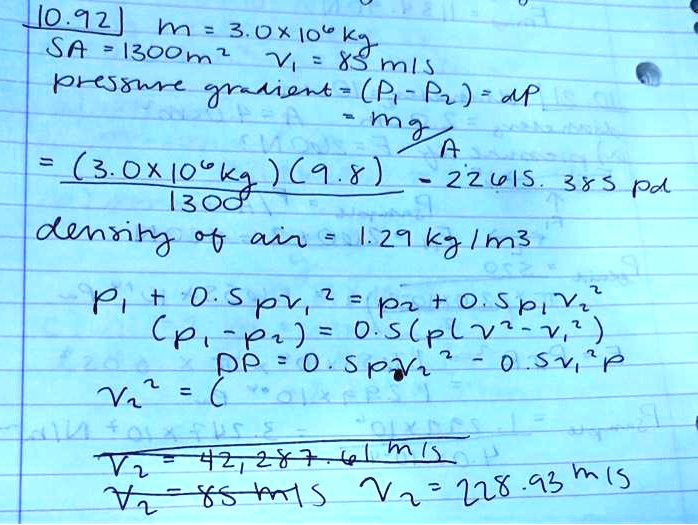 10.92] m = 3.0x10⁶ kg
SA = 1300m² V₁ = 85 m/s
pressure gradient = (P₁ - P₂) = dP
= mg/A
= (3.0x10⁶kg)(9.8)/1300 - 22615.385 pa
density of air = 1.29 kg/m3
P₁ + 0.5 pv₁² = p₂ + 0.5p₁V₂²
(p₁ - p₂) = 0.5(p(v² - v₁²)
DP = 0.5pv₂² - 0.5v₁²p
V₂² = (
V₂ = 42,287.61 m/s
V₂ = 85 m/s V₂ = 228.93 m/s